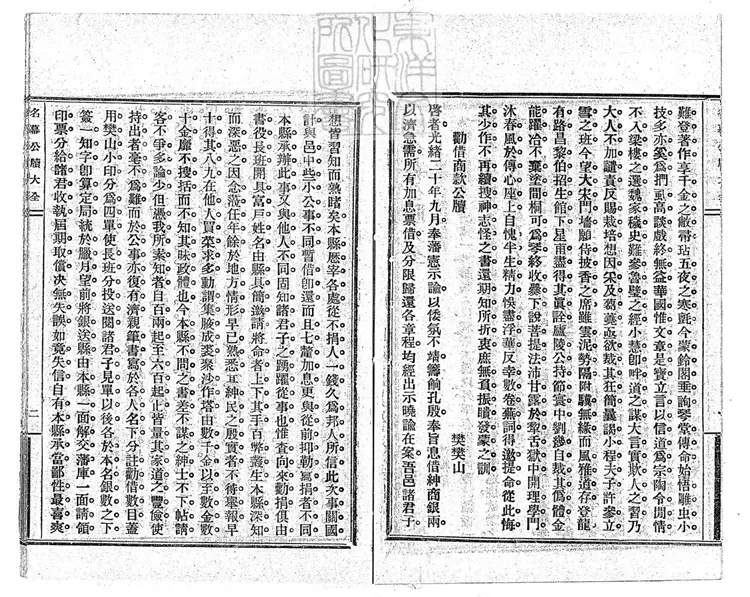 難登著作享千金之敝帚坫五夜之寒氈今蒙鈴閣垂詢琴堂傳命始悟雕虫小
技多亦奚爲捫虱高談戲終無益華國惟文章是寶立言以信道爲宗陶令閒情
不入梁樓之選魏家穢史難參魯壁之經小慧卽畔道之謀大言實欺人之習乃
大人不加譴責反賜栽培想因采及葛葑亟欲裁其狂簡曩誤小程夫子許參立
雪之班今望大宋門墻願侍披香之席雖雲泥勢隔附驥無緣而風雅道存登龍
有路昌黎伯招生館下星甫盡得其眞詮廬陵公持節寰中劉幾自裁其爲體金
能躍冶不棄塗間桐可爲琴終收爨下說菩提法沛甘露於犂舌獄中開理學門
沐春風於傳心座上自愧半生精力悞盡浮華反幸數卷蕪詞得邀提命從此悔
其少作不再續搜神志怪之書還期知所折衷庶無負振瞶發蒙之訓
勸借商款公牘
樊樊山
啓者光緒二十年九月奉藩憲示諭以倭氛不靖籌餉孔殷奉旨息借紳商銀兩
以濟急需所有加息票借及分限歸還各章程均經出示曉諭在案吾邑諸君子
想皆習知而熟睹矣本縣歷宰各處從不捐人一錢久爲邦人所信此次事關國
計與邑中些小公事不同暫借卽還而且七釐加息更與從前抑勒寫捐者不同
本縣承辦此事又與他人不同固知諸君子之踴躍從事也惟查向來勸捐俱由
書役長班開具富戶姓名由縣具簡邀請將命者上下其手百弊叢生本縣深知
而深惡之因念涖任年餘於地方情形早已熟悉耳紳民之殷實者不待舉報早
十得其八九在他人買菜求多動謂集腋成裘聚沙作塔由數千金以至數金數
十金靡不搜括而不知其昧政體也今本縣不問之書差不謀之紳士不下帖請
客不爭多論少但憑我所素知者自百兩起至六百起止皆量其家道之豐儉使
持出者毫不爲難而於公事亦復有濟親筆書寫於各人名下分註勸借數目蓋
用樊山小印分爲四單使長班分投送閱諸君子見單以後各於本名銀數之下
簽一知字卽算定局統於臘月望前將銀送縣由本縣一面解交藩庫一面請領
印票分給諸君收執屆期取償决無失誤如竟失信自有本縣承當鄙性最喜爽
名幕公牘大全
二